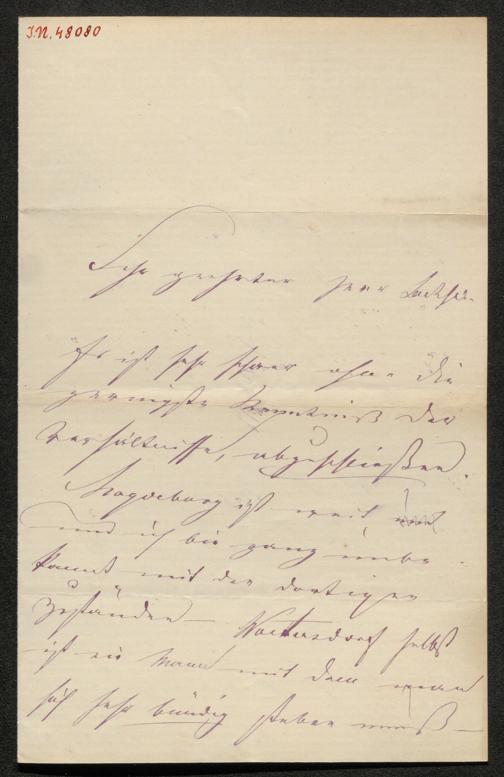 I.N. 48080
Sehr geehrter Herr
Es ist sehr schwer ohne die
geringste Kenntniß der
Verhältnisse, abzuschließen.
Magdeburg ist weit,
und ich bin ganz unbe-
kannt mit den dortigen
Zuständen – Woltersdorf selbst
ist ein Mann mit dem man
sich sehr bündig stellen muß –